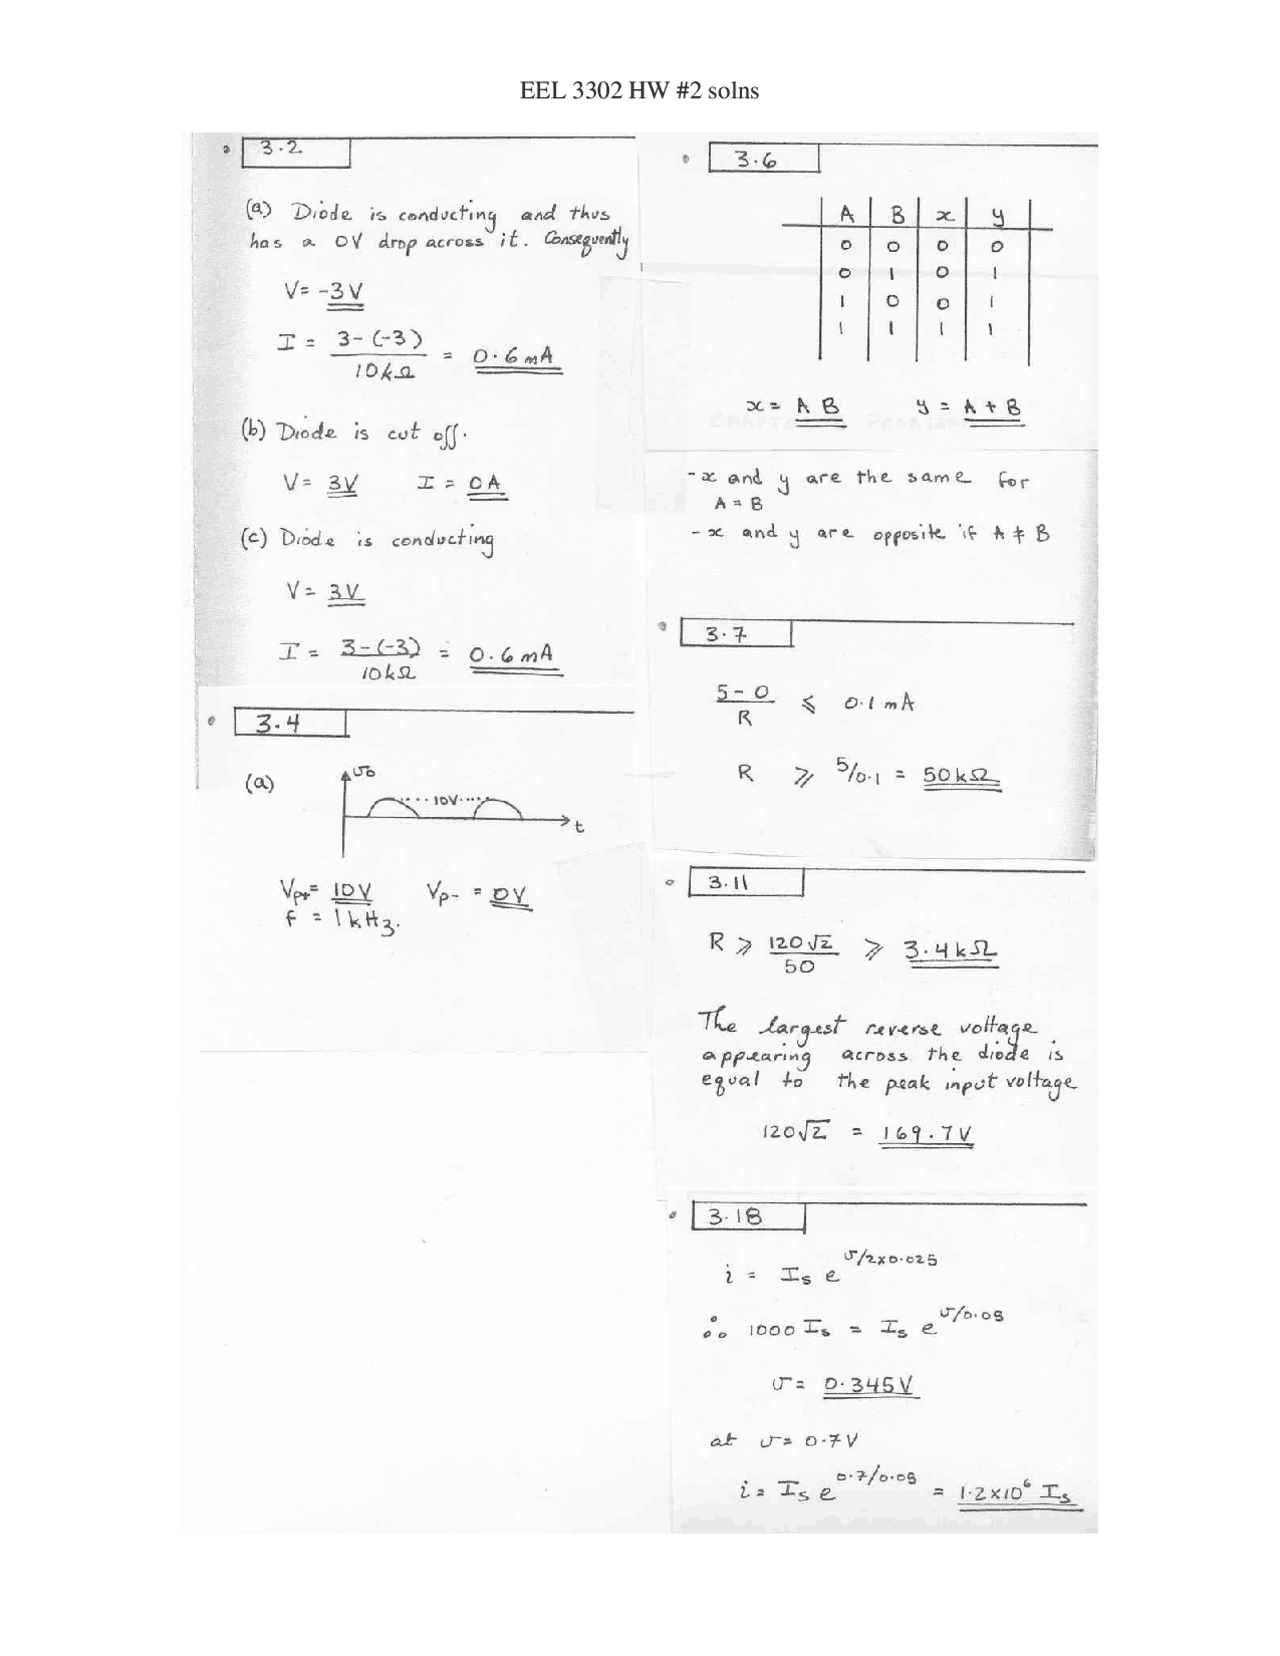 EEL 3302 HW #2 solns
3.2
(a) Diode is conducting and thus
has a 0V drop across it. Consequently
V = -3V
I = 3-(-3) / 10kΩ = 0.6mA
(b) Diode is cut off.
V = 3V I = 0A
(c) Diode is conducting
V = 3V
I = 3-(-3) / 10kΩ = 0.6mA
3.4
(a) υo
10V
t
Vp+ = 10V Vp- = 0V
f = 1kHz.
3.6
A B x y
0 0 0 0
0 1 0 1
1 0 0 1
1 1 1 1
x = A B y = A + B
- x and y are the same for
A = B
- x and y are opposite if A ≠ B
3.7
5-0 / R ≤ 0.1mA
R ≥ 5/0.1 = 50kΩ
3.11
R ≥ 120√2 / 50 ≥ 3.4kΩ
The largest reverse voltage
appearing across the diode is
equal to the peak input voltage
120√2 = 169.7V
3.18
i = Is e^υ/2×0.025
∴ 1000 Is = Is e^υ/0.05
υ = 0.345V
at υ = 0.7V
i = Is e^0.7/0.05 = 1.2×10^6 Is